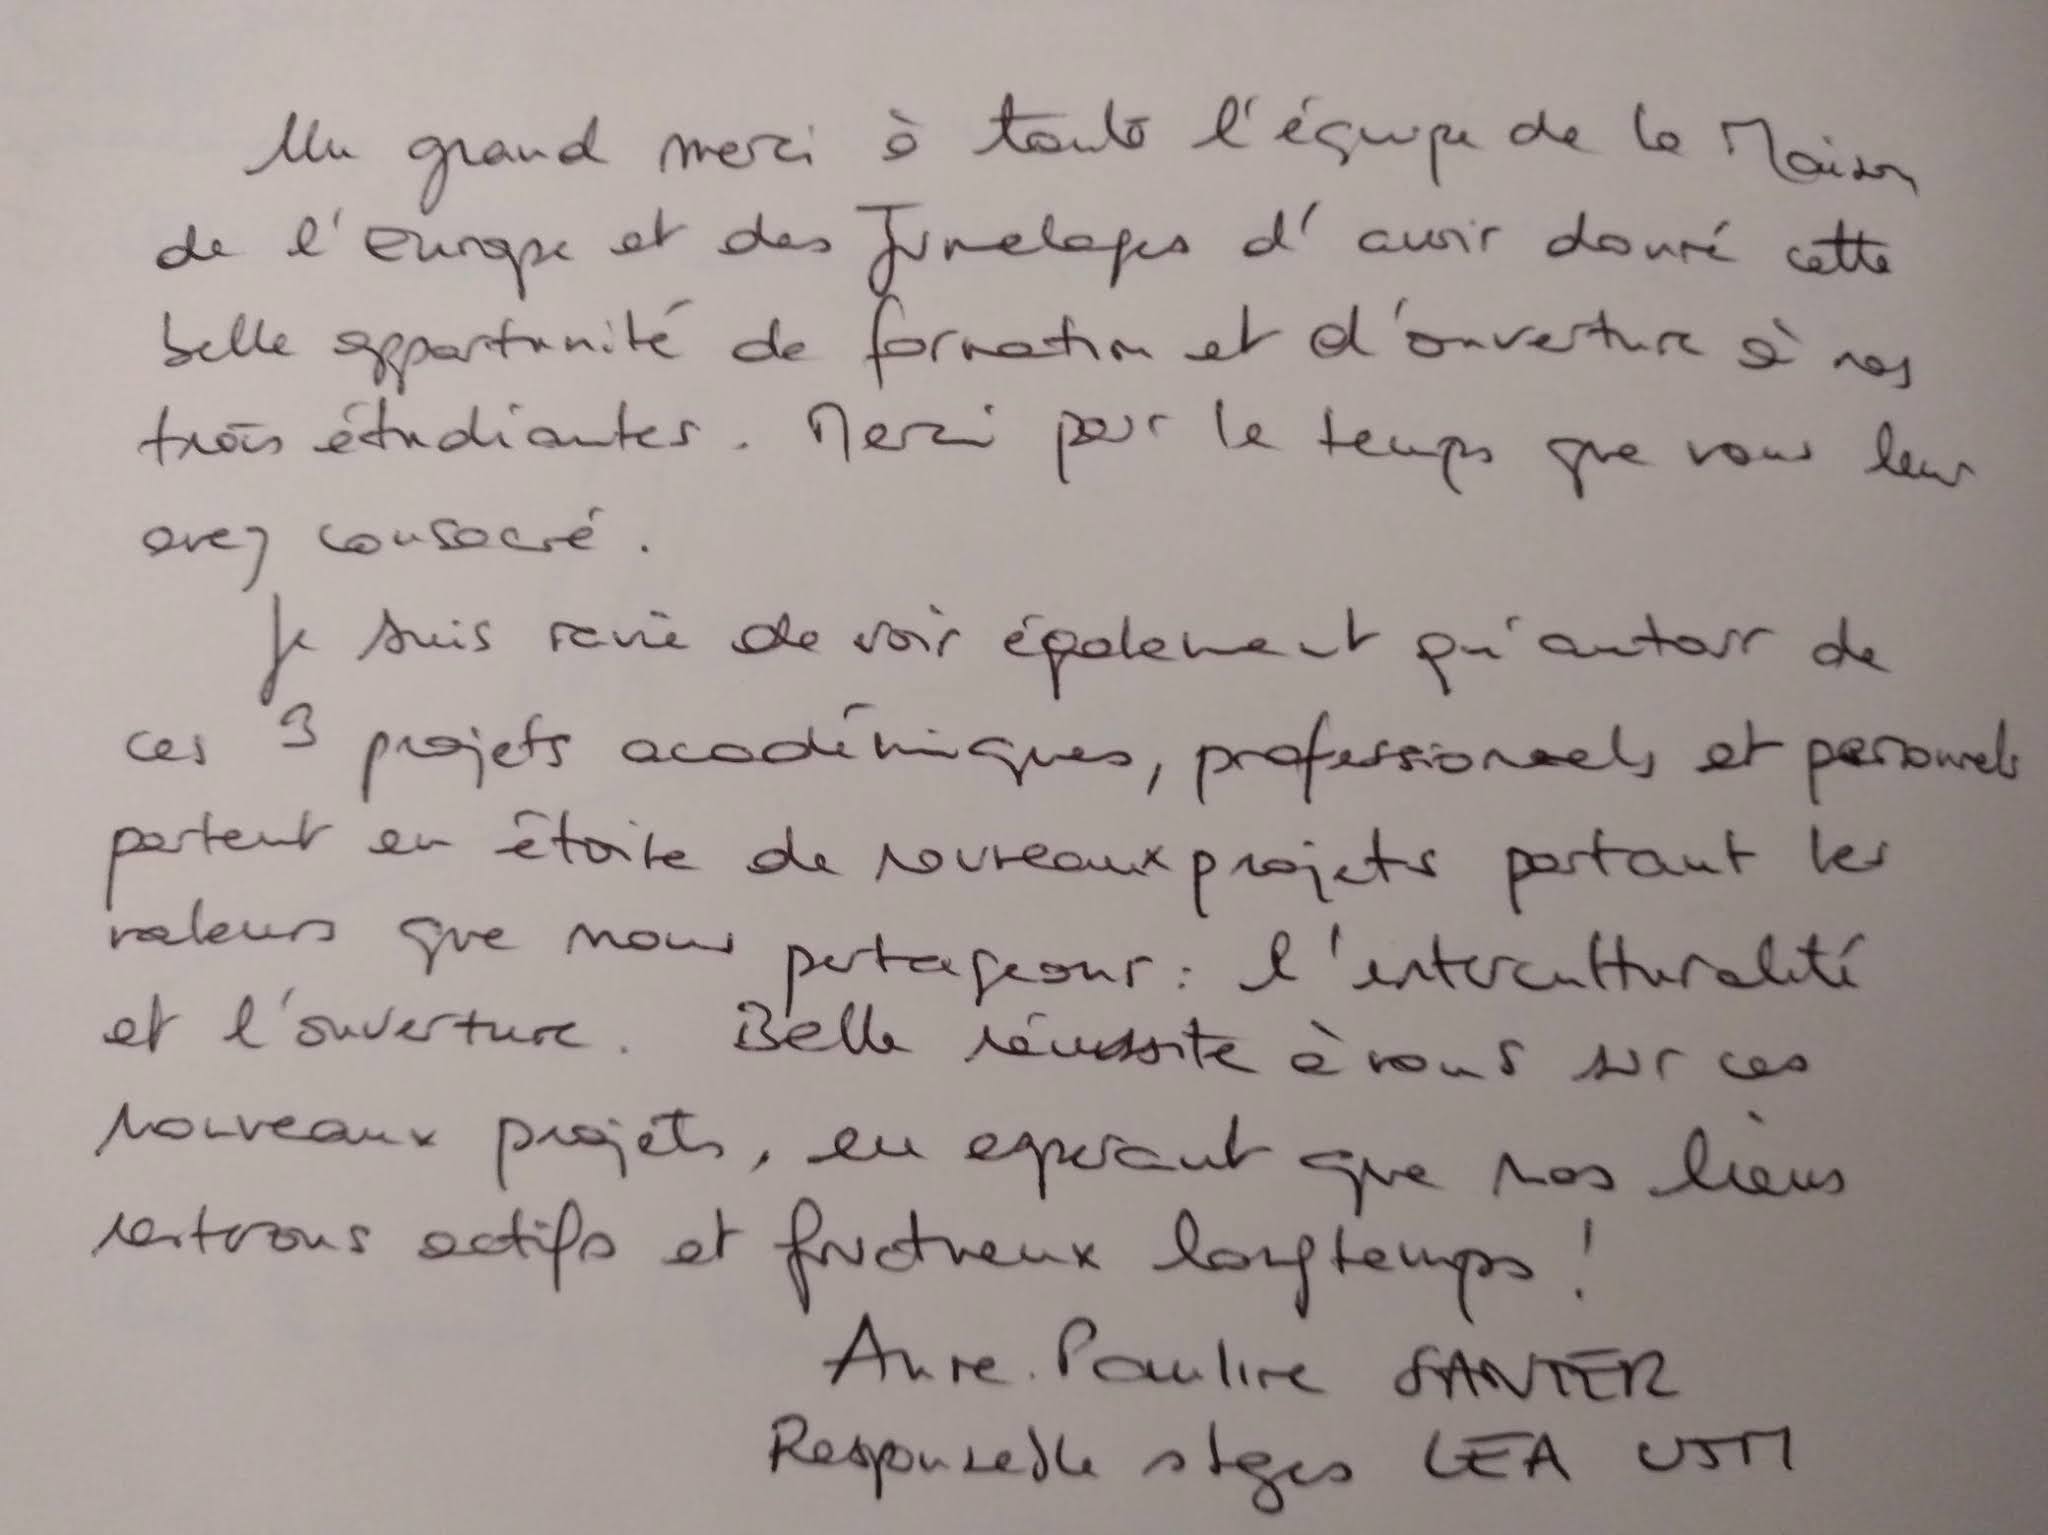 Un grand merci à toute l'équipe de la Maison
de l'Europe et des Jumelages d'avoir donné cette
belle opportunité de formation et d'ouverture à nos
trois étudiantes. Merci pour le temps que vous leur
avez consacré.
Je suis ravie de voir également qu'autour de
ces 3 projets académiques, professionnels et personnels
partent en étoile de nouveaux projets portant les
valeurs que nous partageons : l'interculturalité
et l'ouverture. Belle réussite à vous sur ces
nouveaux projets, en espérant que nos liens
resterons actifs et fructueux longtemps !
Anne-Pauline SANTER
Responsable stages LEA